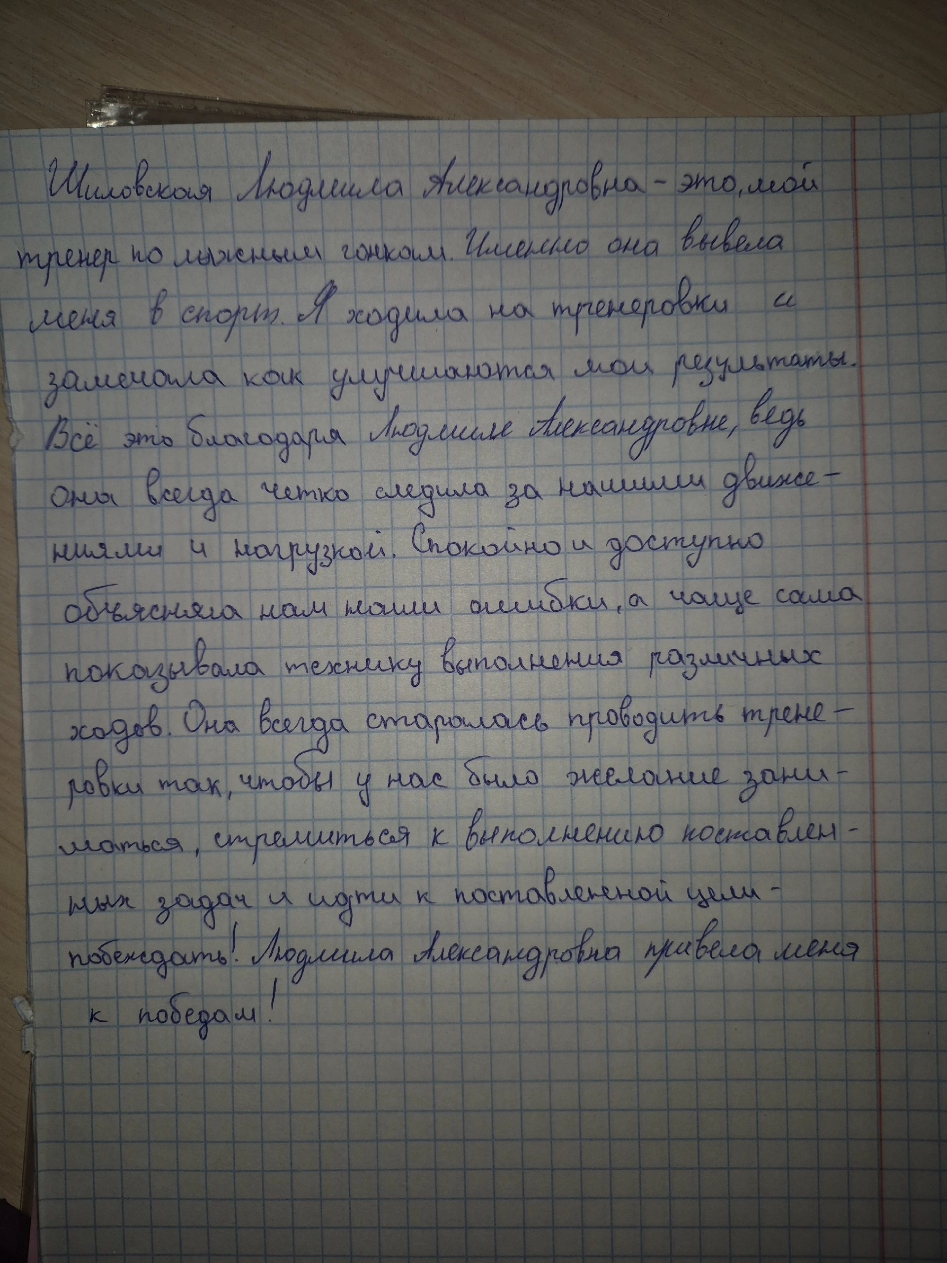 Шиловская Людмила Александровна - это, мой
тренер по лыжным гонкам. Именно она вывела
меня в спорт. Я ходила на тренеровки и
замечала как улучшаются мои результаты.
Всё это благодаря Людмиле Александровне, ведь
она всегда четко следила за нашими движе-
ниями и нагрузкой. Спокойно и доступно
объясняла нам наши ошибки, а чаще сама
показывала технику выполнения различных
ходов. Она всегда старалась проводить трене-
ровки так, чтобы у нас было желание зани-
маться, стремиться к выполнению поставлен-
ных задач и идти к поставленной цели -
побеждать! Людмила Александровна привела меня
к победам!